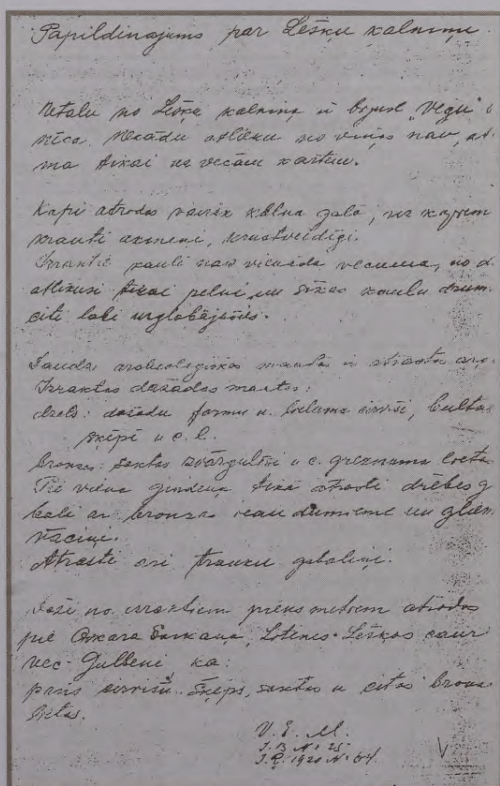 Papildinajums par Lēšķu kalniņu
Netālu no Lēšķu kalniņa ir bijusi "Vēģu"
nīca. Nekādu atlieku no viņas nav, at
ma tikai uz vecām kartēm.
Kapi atrodas vairāk kalna galā, uz kapiem
krauti akmeņi, krustveidīgi.
Izraktie kauli nav vienāda vecuma, no d.
atlikuši tikai pelni un sīkas kaulu drum
citi labi uzglabājušies.
Daudz archeologiskas mantas ir atrastas arī.
Izraktas dažādas mantas:
dzels: dažādu formu u. lieluma cirvīši, bultas
šķēpi u c. l.
bronza: saktas zvārgulīši u c. greznuma lietas
Pie viena ģindeņa tika atrasti drēbes g
bali ar bronzas
vāciņi.
Atrasti ari trauku gabaliņi.
Daži no izraktiem priekšmetiem atrodas
pie Oskara Sarkaņa, Lēšķos caur
vec-Gulbeni kā:
šķēps, saktas u citas bronz
lietas.
V. E. M.
I. B. № 25.
I. R. 1920 № 64.